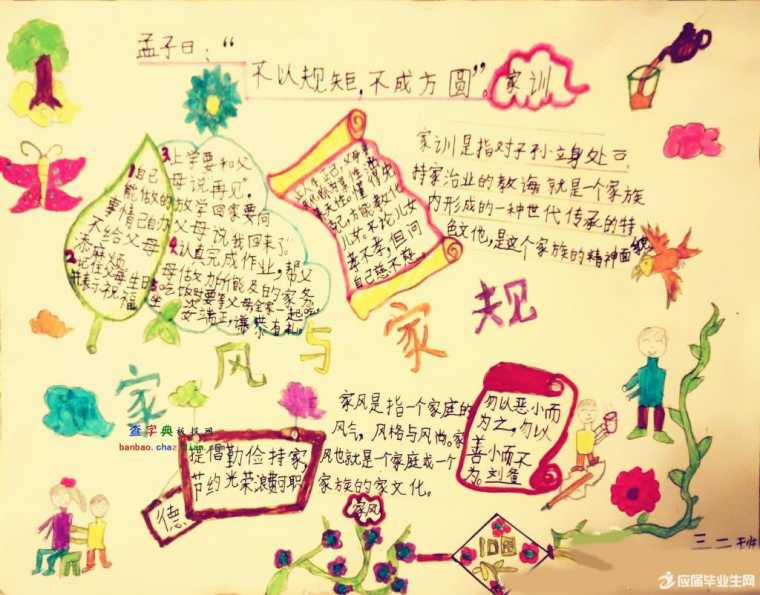 孟子曰：“
不以规矩，不成方圆”。
家训
1自己
能做的
事情自己办
不给父母
添麻烦
2记住父母生日
并表示祝福
3上学要和父
母说再见”。
放学回家要向
父母说我回来了。
4认真完成作业，帮父
母做力所能及的家务
5吃饭时要等父母全家一起吃，
坐
自己方能教化
儿女。不论儿女
孝不孝，但问
自己慈不慈。
家训是指对子孙立身处
持家治业的教诲就是一个家族
内形成的一种世代传承的特
色文化，是这个家族的精神面貌
家风与家规
查字典板报网
banbao.chazidian
提倡勤俭持家，
节约光荣浪费可耻
德
家风是指一个家庭的
风气，风格与风尚。家
风也就是一个家庭或一个
家族的家文化。
家风
勿以恶小而
为之，勿以
善小而不
为。刘备
三二班
应届毕业生网